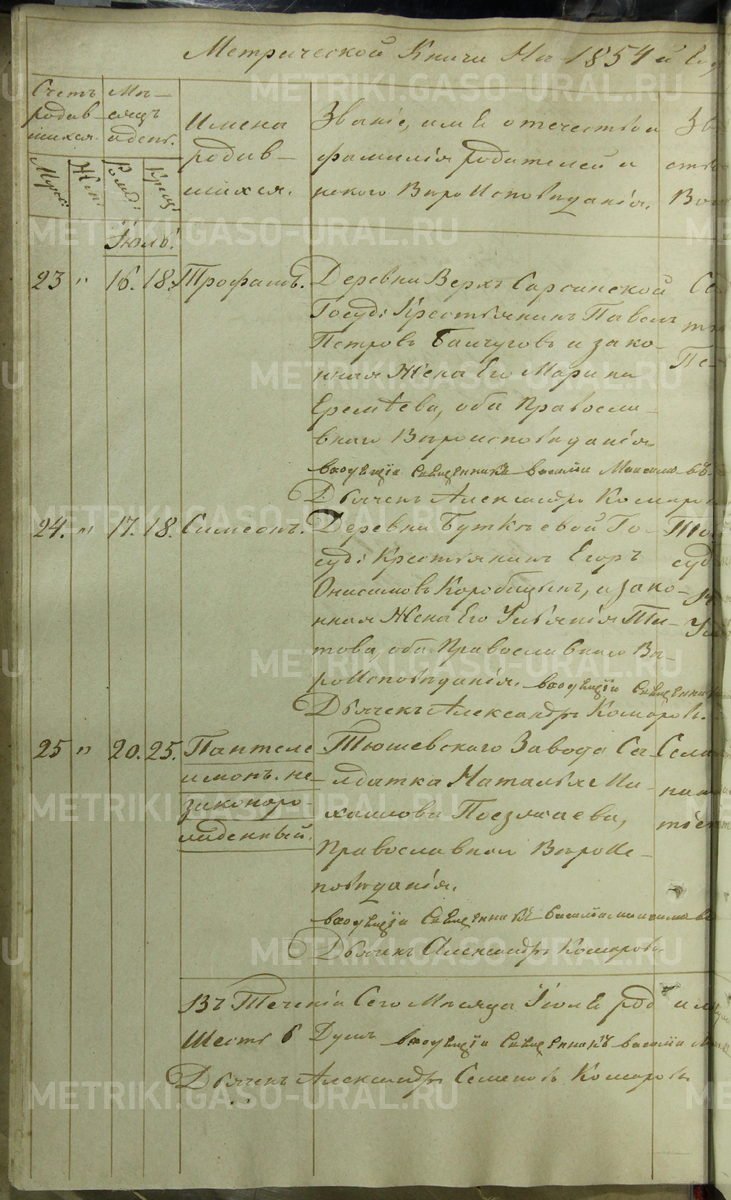 Метрической Книги На 1854й Го
Счетъ родив-шихся.
Мѣ-сяцъ и день.
Имена родив-шихся.
Званіе, имя, отечество и
фамилія родителей и
ковского Вѣро Исповѣданія.
Муж: Жен: Рожд: Крещ:
Іюль.
23 " 16. 18. Трофимъ. Деревни Верхъ Сарсинской
Госуд: Крестьянинъ Павелъ
Петровъ и зако-
нная Жена Его Марина
Еремѣева, оба Православ-
внаго Вѣроисповѣданія
Священникъ Василій
Дьячекъ Александръ Комаров
24. " 17. 18. Симеонъ. Деревни Буткѣевой Го-
суд: Крестьянинъ Егоръ
Онисимовъ Коробицынъ, и зако-
нная Жена Его Ульянія Ти-
това, оба Православнаго Вѣ-
ро Исповѣданія. Священник
Дьячекъ Александръ Комаровъ.
25 " 20. 25. Пантеле
имонъ. не-
законоро-
жденный.
Тюшевскаго Завода Са-
лдатка Наталья Ми-
хайлова Поезжаева,
Православнаго Вѣро Ис-
повѣданія.
Священникъ Василій
Дьячекъ Александръ Комаровъ
Въ Теченіи Сего Мѣсяца Іюля род
Шесть 6 Душъ Священникъ Василій
Дьячекъ Александръ Семеновъ Комаровъ
METRIKI.GASO-URAL.RU